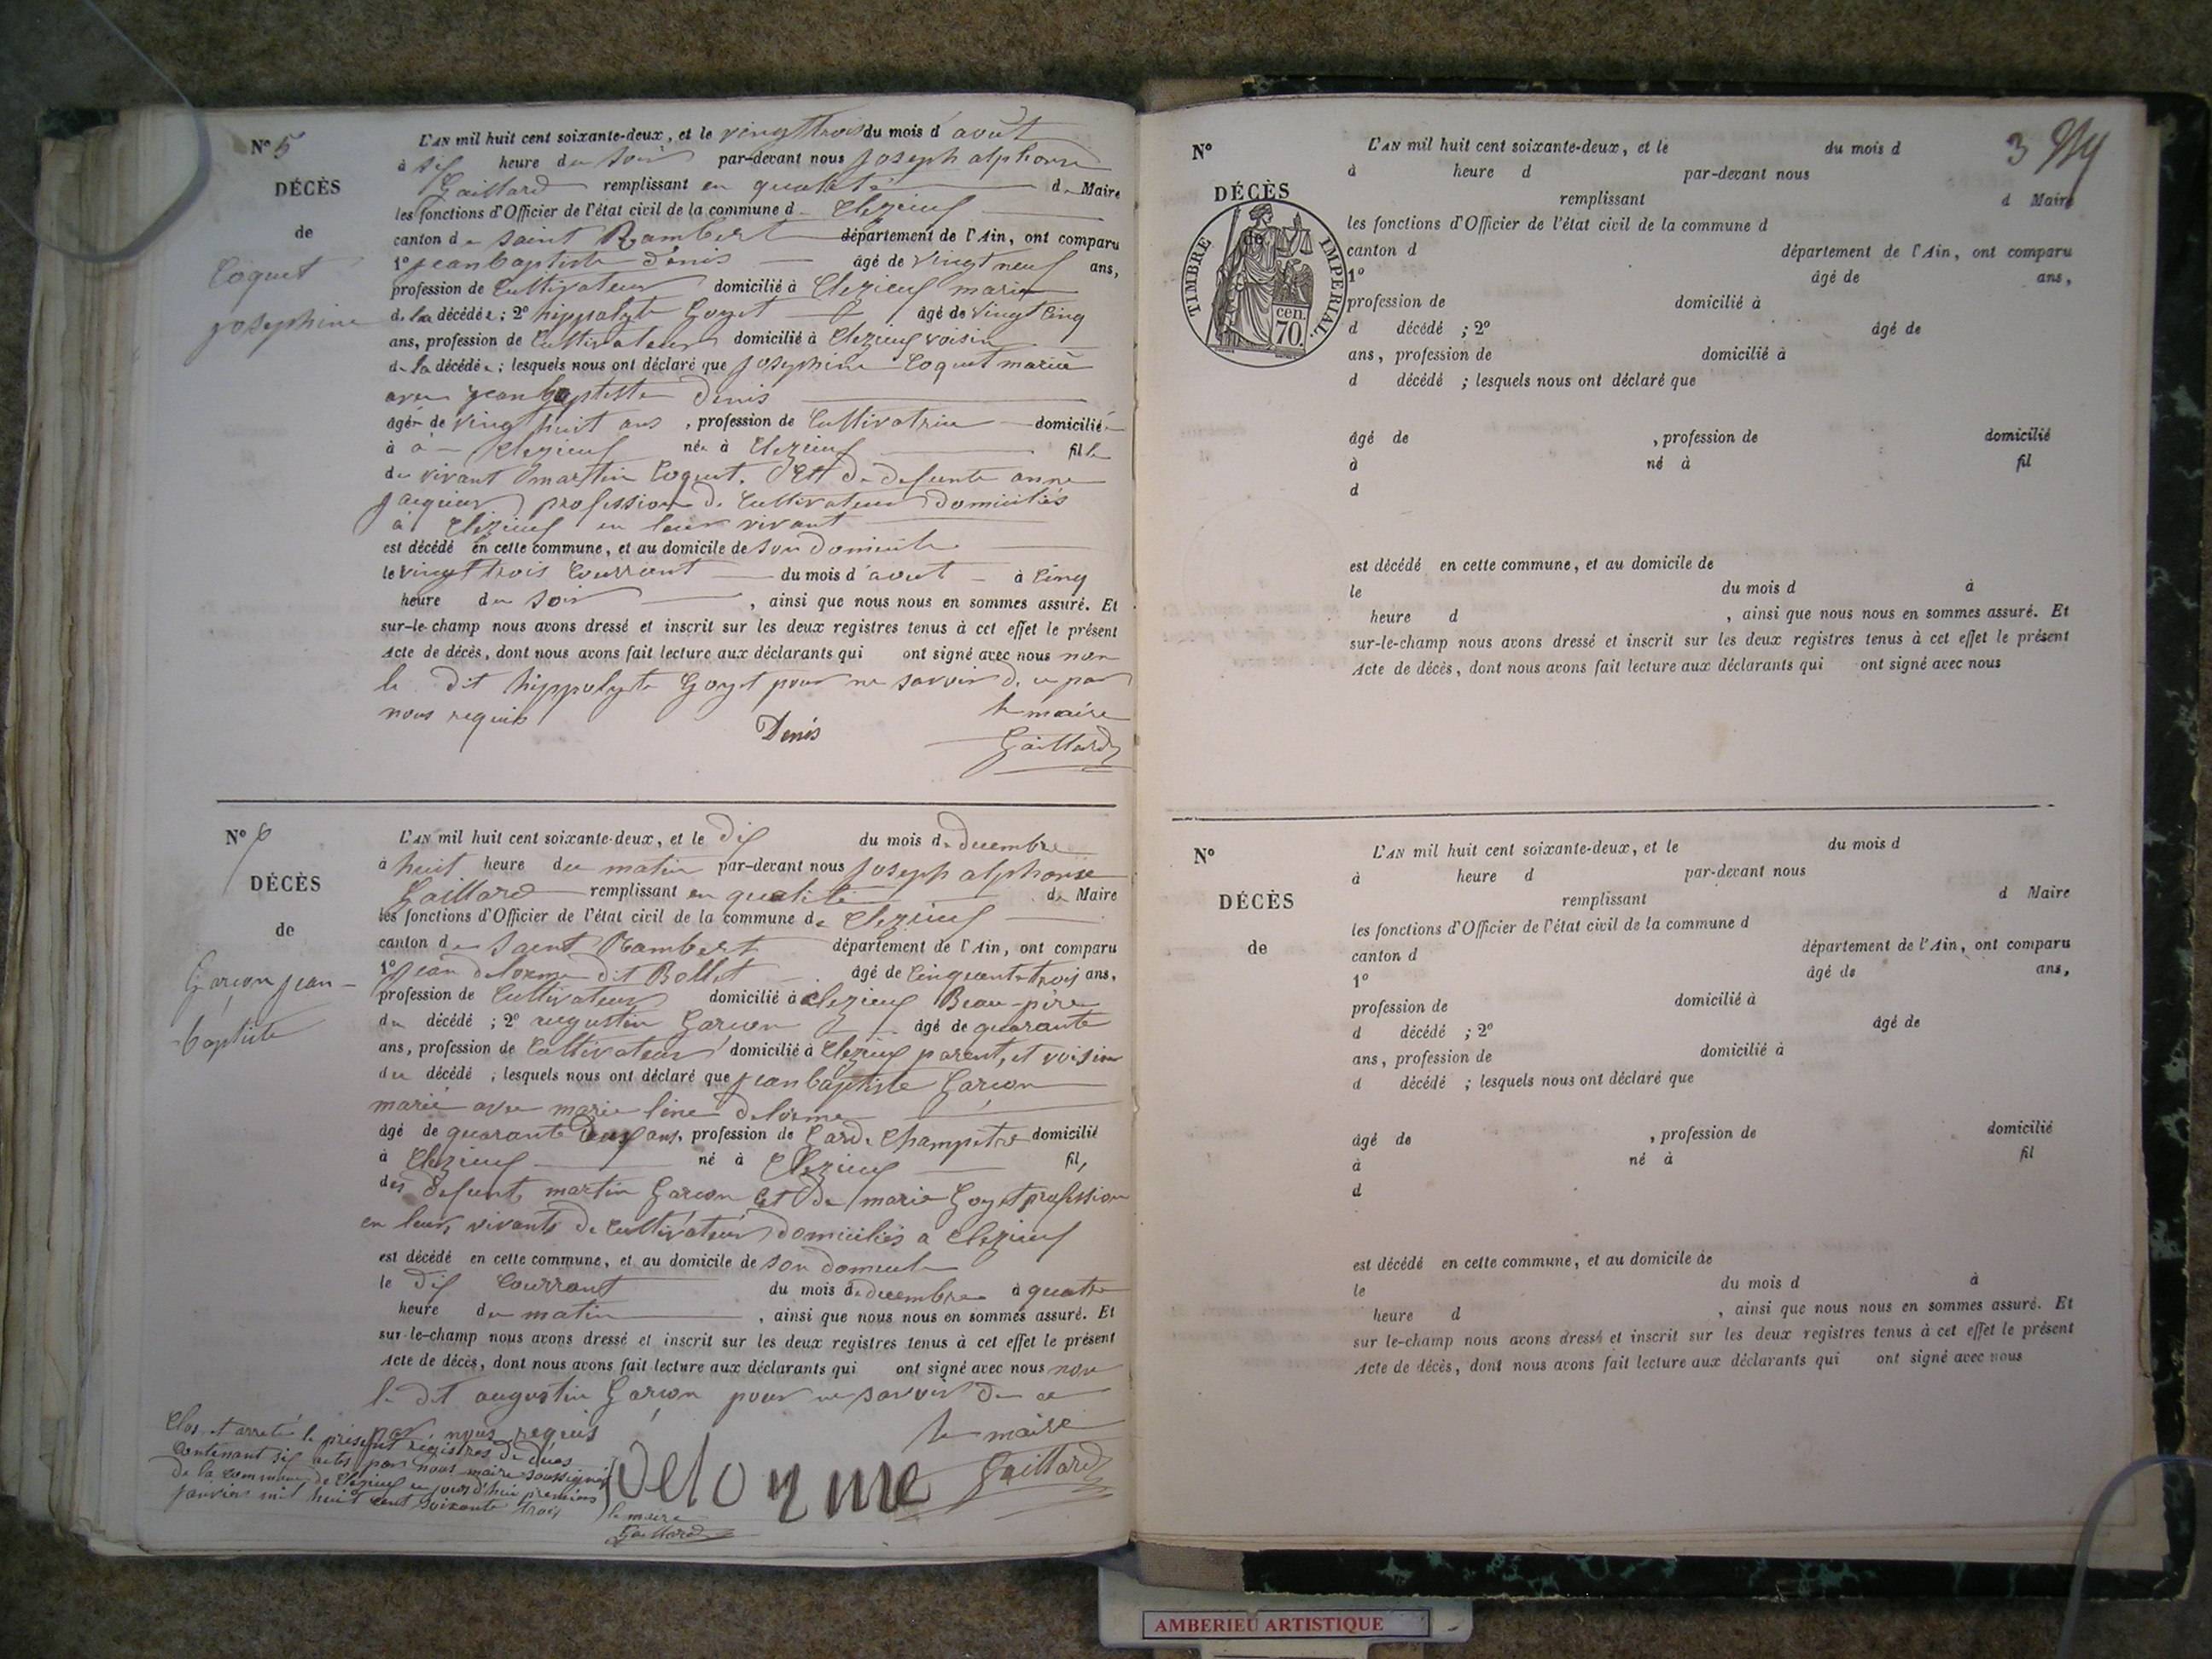 N° 5
DÉCÈS
de
Coquet
josephine
L'AN mil huit cent soixante-deux, et le vingt trois du mois d'août
à six heure du soir par-devant nous joseph alphonse
Gaillard remplissant en qualité de Maire
les fonctions d'Officier de l'état civil de la commune de Clezieuf
canton de saint Rambert département de l'Ain, ont comparu
1° jean baptiste denis âgé de vingt neuf ans,
profession de Cultivateur domicilié à Clezieuf marie
de la décédée; 2° hippolyte Goyet âgé de vingt cinq
ans, profession de Cultivateur domicilié à Clezieuf voisin
de la décédée; lesquels nous ont déclaré que josephine Coquet mariè
avec jean baptiste denis
âgée de vingt huit ans, profession de Cultivatrice domicilié
à à Clezieuf née à Clezieuf fille
de vivant martin Coquet. Et de defunte anne
jacquier profession de Cultivateur domiciliés
à Clezieuf en leur vivant
est décédé en cette commune, et au domicile de son domicile
le vingt trois Courrant du mois d'aout à Cinq
heure du soir, ainsi que nous nous en sommes assuré. Et
sur-le-champ nous avons dressé et inscrit sur les deux registres tenus à cet effet le présent
Acte de décès, dont nous avons fait lecture aux déclarants qui ont signé avec nous non
le dit hippolyte Goyet pour ne savoir de ce par
nous requis le maire
Denis Gaillard
N° 6
DÉCÈS
de
Garçon jean-
baptiste
L'AN mil huit cent soixante-deux, et le dix du mois de decembre
à huit heure du matin par-devant nous joseph alphonse
Gaillard remplissant en qualité de Maire
les fonctions d'Officier de l'état civil de la commune de Clezieuf
canton de saint Rambert département de l'Ain, ont comparu
1° jean delorme dit Bollet âgé de Cinquante trois ans,
profession de Cultivateur domicilié à Clezieuf Beau-père
du décédé; 2° augustin Garcon âgé de quarante
ans, profession de Cultivateur domicilié à Clezieuf parent, et voisin
du décédé; lesquels nous ont déclaré que jean baptiste Garcon
marié avec marie line delorme
âgé de quarante deux ans, profession de Gard. Champetre domicilié
à Clezieuf né à Clezieuf fil,
des defunts martin Garcon Et de marie Goyet profession
en leurs vivants de Cultivateur domiciliés a Clezieuf
est décédé en cette commune, et au domicile de son domicile
le dix Courrant du mois de decembre à quatre
heure du matin, ainsi que nous nous en sommes assuré. Et
sur-le-champ nous avons dressé et inscrit sur les deux registres tenus à cet effet le présent
Acte de décès, dont nous avons fait lecture aux déclarants qui ont signé avec nous non
le dit augustin Garçon pour ne savoir de ce
par nous requis le maire
Delorme Gaillard
Clos et arreté le présent registres de déces
Contenant six actes par nous maire soussigné
de la Commune de Clezieuf en jourd'hui premier
janvier mil huit cent soixante trois
le maire
Gaillard
3
N°
DÉCÈS
de
TIMBRE IMPERIAL.
70. cen.
L'AN mil huit cent soixante-deux, et le du mois d
à heure d par-devant nous
remplissant d Maire
les fonctions d'Officier de l'état civil de la commune d
canton d département de l'Ain, ont comparu
1° âgé de ans,
profession de domicilié à
d décédé ; 2° âgé de
ans, profession de domicilié à
d décédé ; lesquels nous ont déclaré que
âgé de , profession de domicilié
à né à fil
d
est décédé en cette commune, et au domicile de
le du mois d à
heure d , ainsi que nous nous en sommes assuré. Et
sur-le-champ nous avons dressé et inscrit sur les deux registres tenus à cet effet le présent
Acte de décès, dont nous avons fait lecture aux déclarants qui ont signé avec nous
N°
DÉCÈS
de
L'AN mil huit cent soixante-deux, et le du mois d
à heure d par-devant nous
remplissant d Maire
les fonctions d'Officier de l'état civil de la commune d
canton d département de l'Ain, ont comparu
1° âgé de ans,
profession de domicilié à
d décédé ; 2° âgé de
ans, profession de domicilié à
d décédé ; lesquels nous ont déclaré que
âgé de , profession de domicilié
à né à fil
d
est décédé en cette commune, et au domicile de
le du mois d à
heure d , ainsi que nous nous en sommes assuré. Et
sur le-champ nous avons dressé et inscrit sur les deux registres tenus à cet effet le présent
Acte de décès, dont nous avons fait lecture aux déclarants qui ont signé avec nous
AMBERIEU ARTISTIQUE